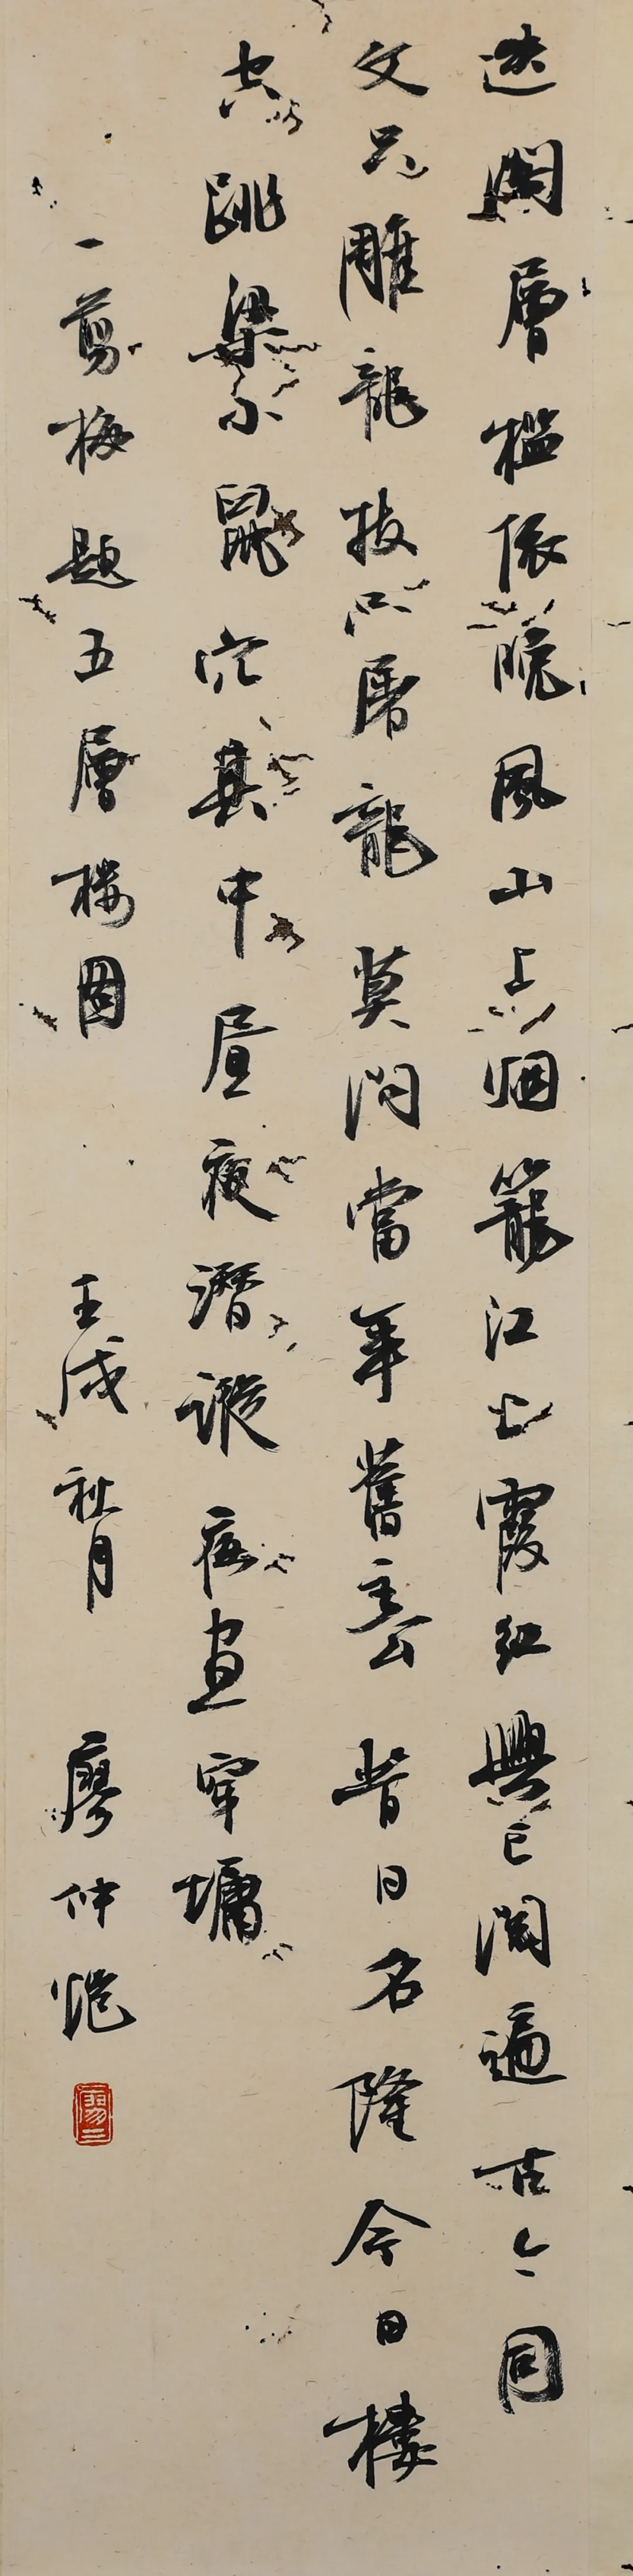 迭閣層檻依晚風山上烟籠江上霞紅興亡閱遍古今同
文只雕龍技只屠龍莫問當年舊主公昔日名隆今日樓
空跳梁小鼠穴其中晝夜潛蹤夜晝穿墉
一剪梅題五層樓圖 壬戌秋月 廖仲愷